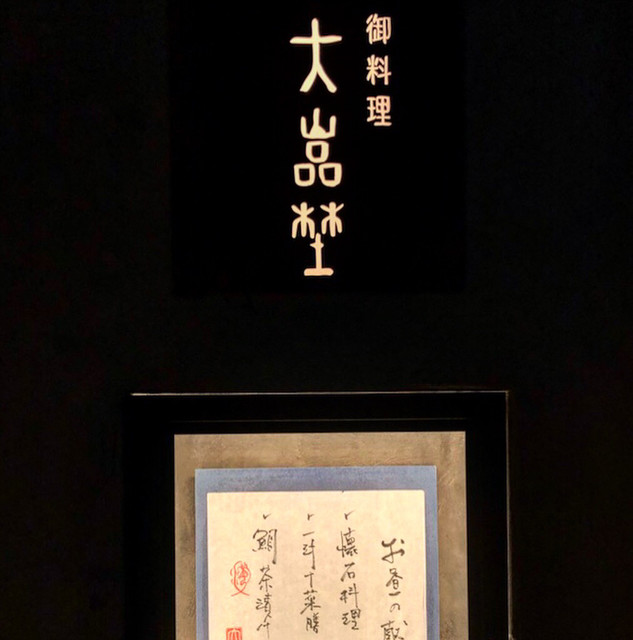 御料理
大嵓埜
お昼の献
、懐石料理
、一汁十菜膳
、鯛茶漬け